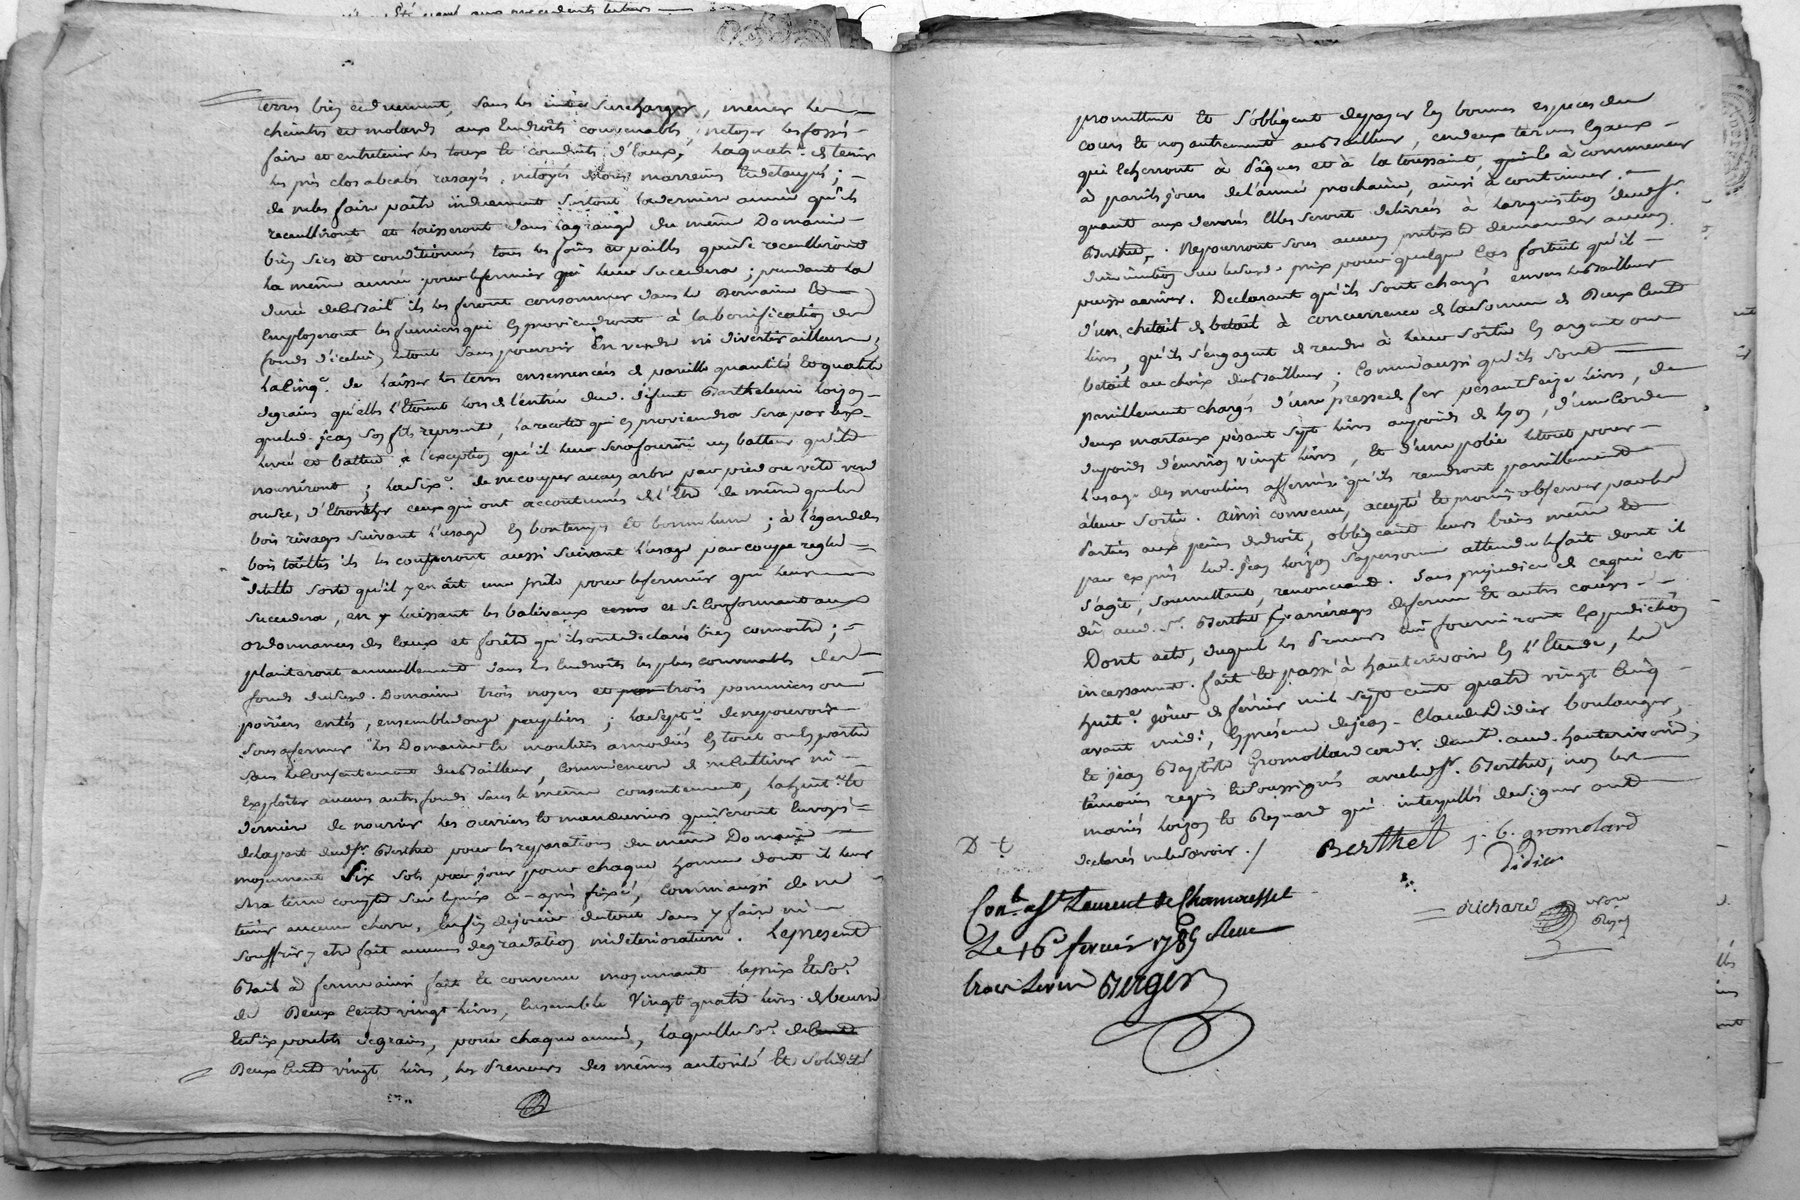 terres bien et duement, sans les surcharger, mener les
cheintres et molards aux Endroits convenables, netoyer les fossés
faire et entretenir les toux et conduits d'Eaux; La quatre. de tenir
les prés clos abecqués rasayés, netoyés
de ne les faire paitre induement surtout la derniere année qu'ils
receuilliront et laisseront dans la grange du même Domaine
bien secs et conditionnés tous les foins et pailles qui se receuilliront
la même année pour le fermier qui leur succedera; pendant la
durée de ce Bail ils les feront consommer dans le Domaine Et
Employeront les fumiers qui En proviendront à la bonification des
fonds d'icelui, le tout sans pouvoir En vendre ni divertir ailleurs;
La Cinqe. de laisser les terres ensemencées de pareille quantité Et qualité
de grains qu'elles l'Etoient lors de l'entrée dud. défunt Barthelemi loizon
que led. Jean son fils represente, la recolte qui En proviendra sera par Eux
levée et battue à l'exception qu'il leur sera fourni un batteur qu'ils
nourriront; la sixe. de ne couper aucun arbre par pied ou tête verd
ou sec, d'Etronther ceux qui ont accoutumés de l'Etre de même que les
bois rivages suivant l'usage En bon tems Et bonne lune; à l'égard des
bois taillis ils les couperont aussi suivant l'usage par coupe reglée
de telle sorte qu'il y en ait une prête pour le fermier qui leur
succedera, en y laissant les balivaux et se Conformant aux
ordonnances des Eaux et forêts qu'ils ont declarés bien connoitre;
planteront annuellement dans les Endroits les plus convenables des
fonds du susd. Domaine trois noyers et trois pommiers ou
poiriers entés, ensemble douze peupliers; la septe. de ne pouvoir
sous afermer les Domaine Et moulins amodiés En tout ou En partie
sans le Consentement du Bailleur, Comm'encore de ne Cultiver ni
Exploiter aucuns autres fonds sans le même consentement, la huite. Et
derniere de nourrir les ouvriers Et manoeuvriers qui seront Envoyés
de la part dud. sr. Berthet pour les reparations du même Domaine
moyennant Six sols par jour pour chaque homme dont il leur
sera tenu compte sur le prix ci-après fixé, comm'aussi de ne
tenir aucune chevre, Enfin de jouir du tout sans y faire ni
souffrir y etre fait aucune degradation ni déterioration. Le present
Bail à ferme ainsi fait Et convenu moyennant le prix Et Soe.
de Deux Cents vingt livres, Ensemble Vingt quatre livres de beurre
Et six poulets de grains, pour chaque année, laquelle soe. de
Deux Cents vingt livres, les Preneurs des mêmes autorité Et solidité
promettent Et s'obligent de payer En bonnes especes du
cours Et non autrement aud. Bailleur, en deux termes Egaux
qui Echerront à Pâques et à la toussaint, qui'le à commencer
à pareils jours de l'année prochaine, ainsi à continuer.
quant aux denrées Elles seront delivrées à la requisition dud. sr.
Berthet, Ne pourront sous aucun pretexte demander aucune
diminution sur le susd. prix pour quelque Cas fortuit qu'il
puisse arriver. Declarant qu'ils sont chargés envers led. Bailleur
d'un chetail de betail à concurrence de la somme de Deux Cents
livres, qu'ils s'engagent de rendre à leur sortie En argent ou
betail au choix du Bailleur; Comm'aussi qu'ils sont
pareillement chargés d'une presse de fer pesant Seize livres, de
deux marteaux pesant sept livres au poids de , d'une Corde
du poids d'environ vingt livres, Et d'une polie le tout pour
l'usage des moulins affermés qu'ils rendront pareillement
à leur sortie. Ainsi convenu, accepté Et promis observer par les
Parties aux peines de droit, obligeant leurs biens même Et
par exprès led. Jean loizon sa personne attendu le fait dont il
s'agit, soumettant, renonceant. Sans prejudice de ce qui est
dû aud. Sr. Berthet En arrérages de ferme Et autres causes
Dont acte, duquel les Preneurs lui fourniront Expedition
incessament. fait Et passé à hauterivoire En l'Etude, le
huite. jour de fevrier mil sept cent quatre vingt Cinq
avant midi, En présence de jean-Claude Didier boulanger,
Et jean Baptiste Gromollard cordr. demt. aud. hauterivoire,
témoins requis Et soussignés avec led. sr. Berthet, non les
mariés loizon Et Regnard qui interpellés de signer ont
declarés ne le savoir./.
Berthet J. b. gromolard
Didier
richard
Con.le Laurent de Chamousset
Le 16e. fevrier 1785 Reçu
trois Livres Berger